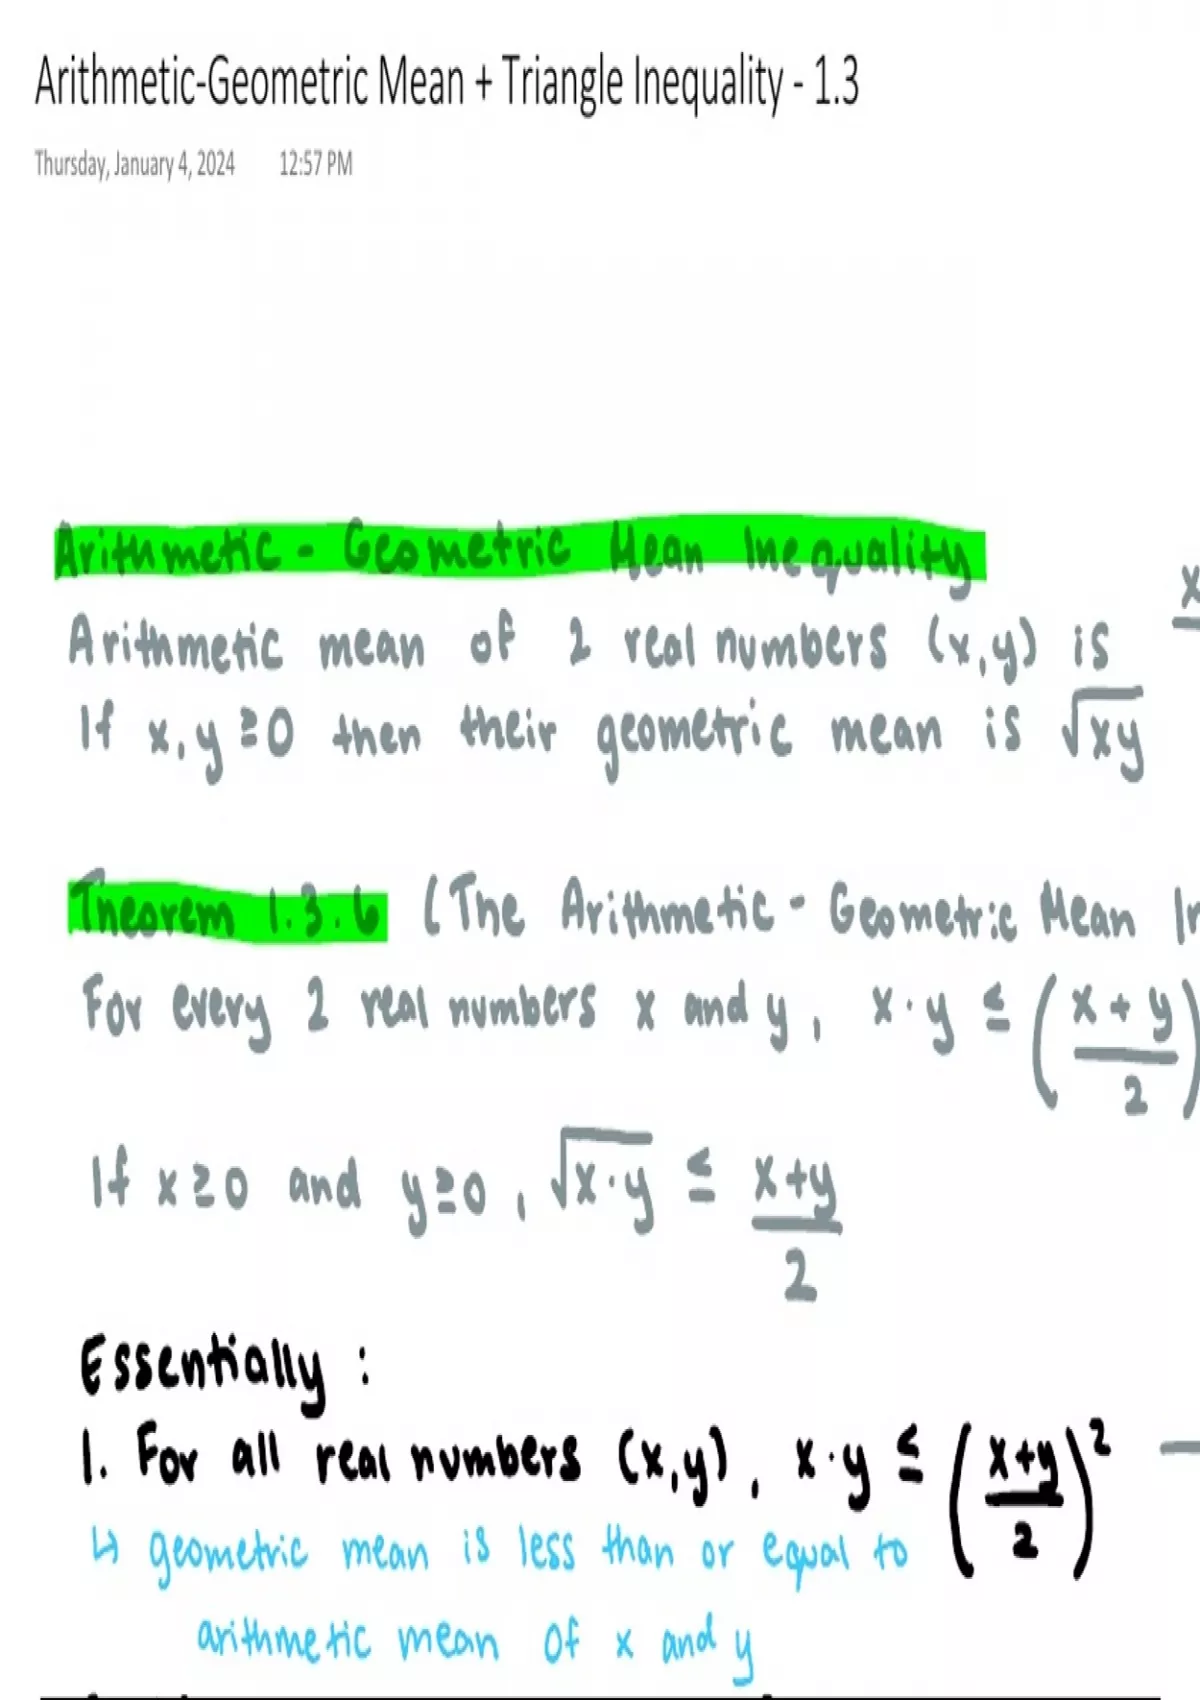 Arithmetic-Geometric Mean + Triangle Inequality - 1.3
Thursday, January 4, 2024 12:57 PM
Arithmetic - Geometric Mean Inequality
Arithmetic mean of 2 real numbers (x,y) is x
If x,y ≥ 0 then their geometric mean is √xy
Theorem 1.3.6 (The Arithmetic - Geometric Mean
For every 2 real numbers x and y, x·y ≤ (x+y/2)
If x≥0 and y≥0, √x·y ≤ x+y/2
Essentially:
1. For all real numbers (x,y), x·y ≤ (x+y/2)²
↳ geometric mean is less than or equal to
arithmetic mean of x and y